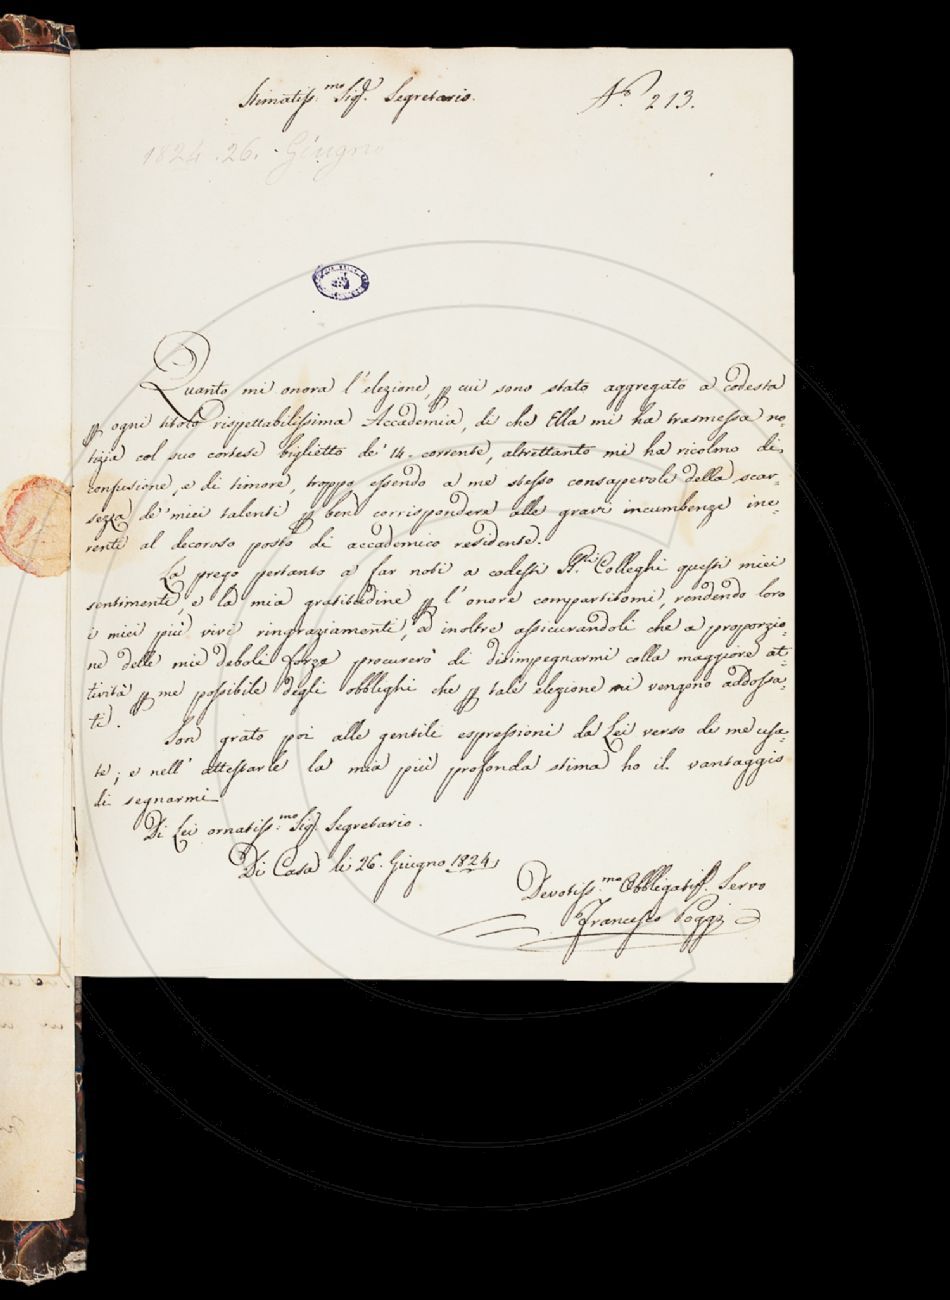 Stimatiss.mo Sig.r Segretario.
N.o 213.
1824. 26. Giugno
Quanto mi onora l'elezione, p cui sono stato aggregato a codesta
p ogni titolo rispettabilissima Accademia, di che Ella mi ha trasmessa no=
tizia col suo cortese biglietto de' 14. corrente, altrettanto mi ha ricolmo di
confusione, e di timore, troppo essendo a me stesso consapevole della scar=
sezza de' miei talenti p ben corrispondere alle gravi incumbenze ine=
renti al decoroso posto di accademico residente.
La prego pertanto a far noti a codesti Colleghi questi miei
sentimenti, e la mia gratitudine p l'onore compartitomi, rendendo loro
i miei più vivi ringraziamenti, ed inoltre assicurandoli che a proporzio=
ne delle mie deboli forze procurerò di disimpegnarmi colla maggiore at=
tività p me possibile degli obblighi che p tale elezione mi vengono addossa=
ti.
Son grato poi alle gentili espressioni da Lei verso di me usa=
te; e nell' attestarle la mia più profonda stima ho il vantaggio
di segnarmi
Di Lei ornatiss.mo Sig.r Segretario.
Di Casa li 26. Giugno 1824,
Devotiss.mo Obbligatiss. Servo
Francesco Poggi